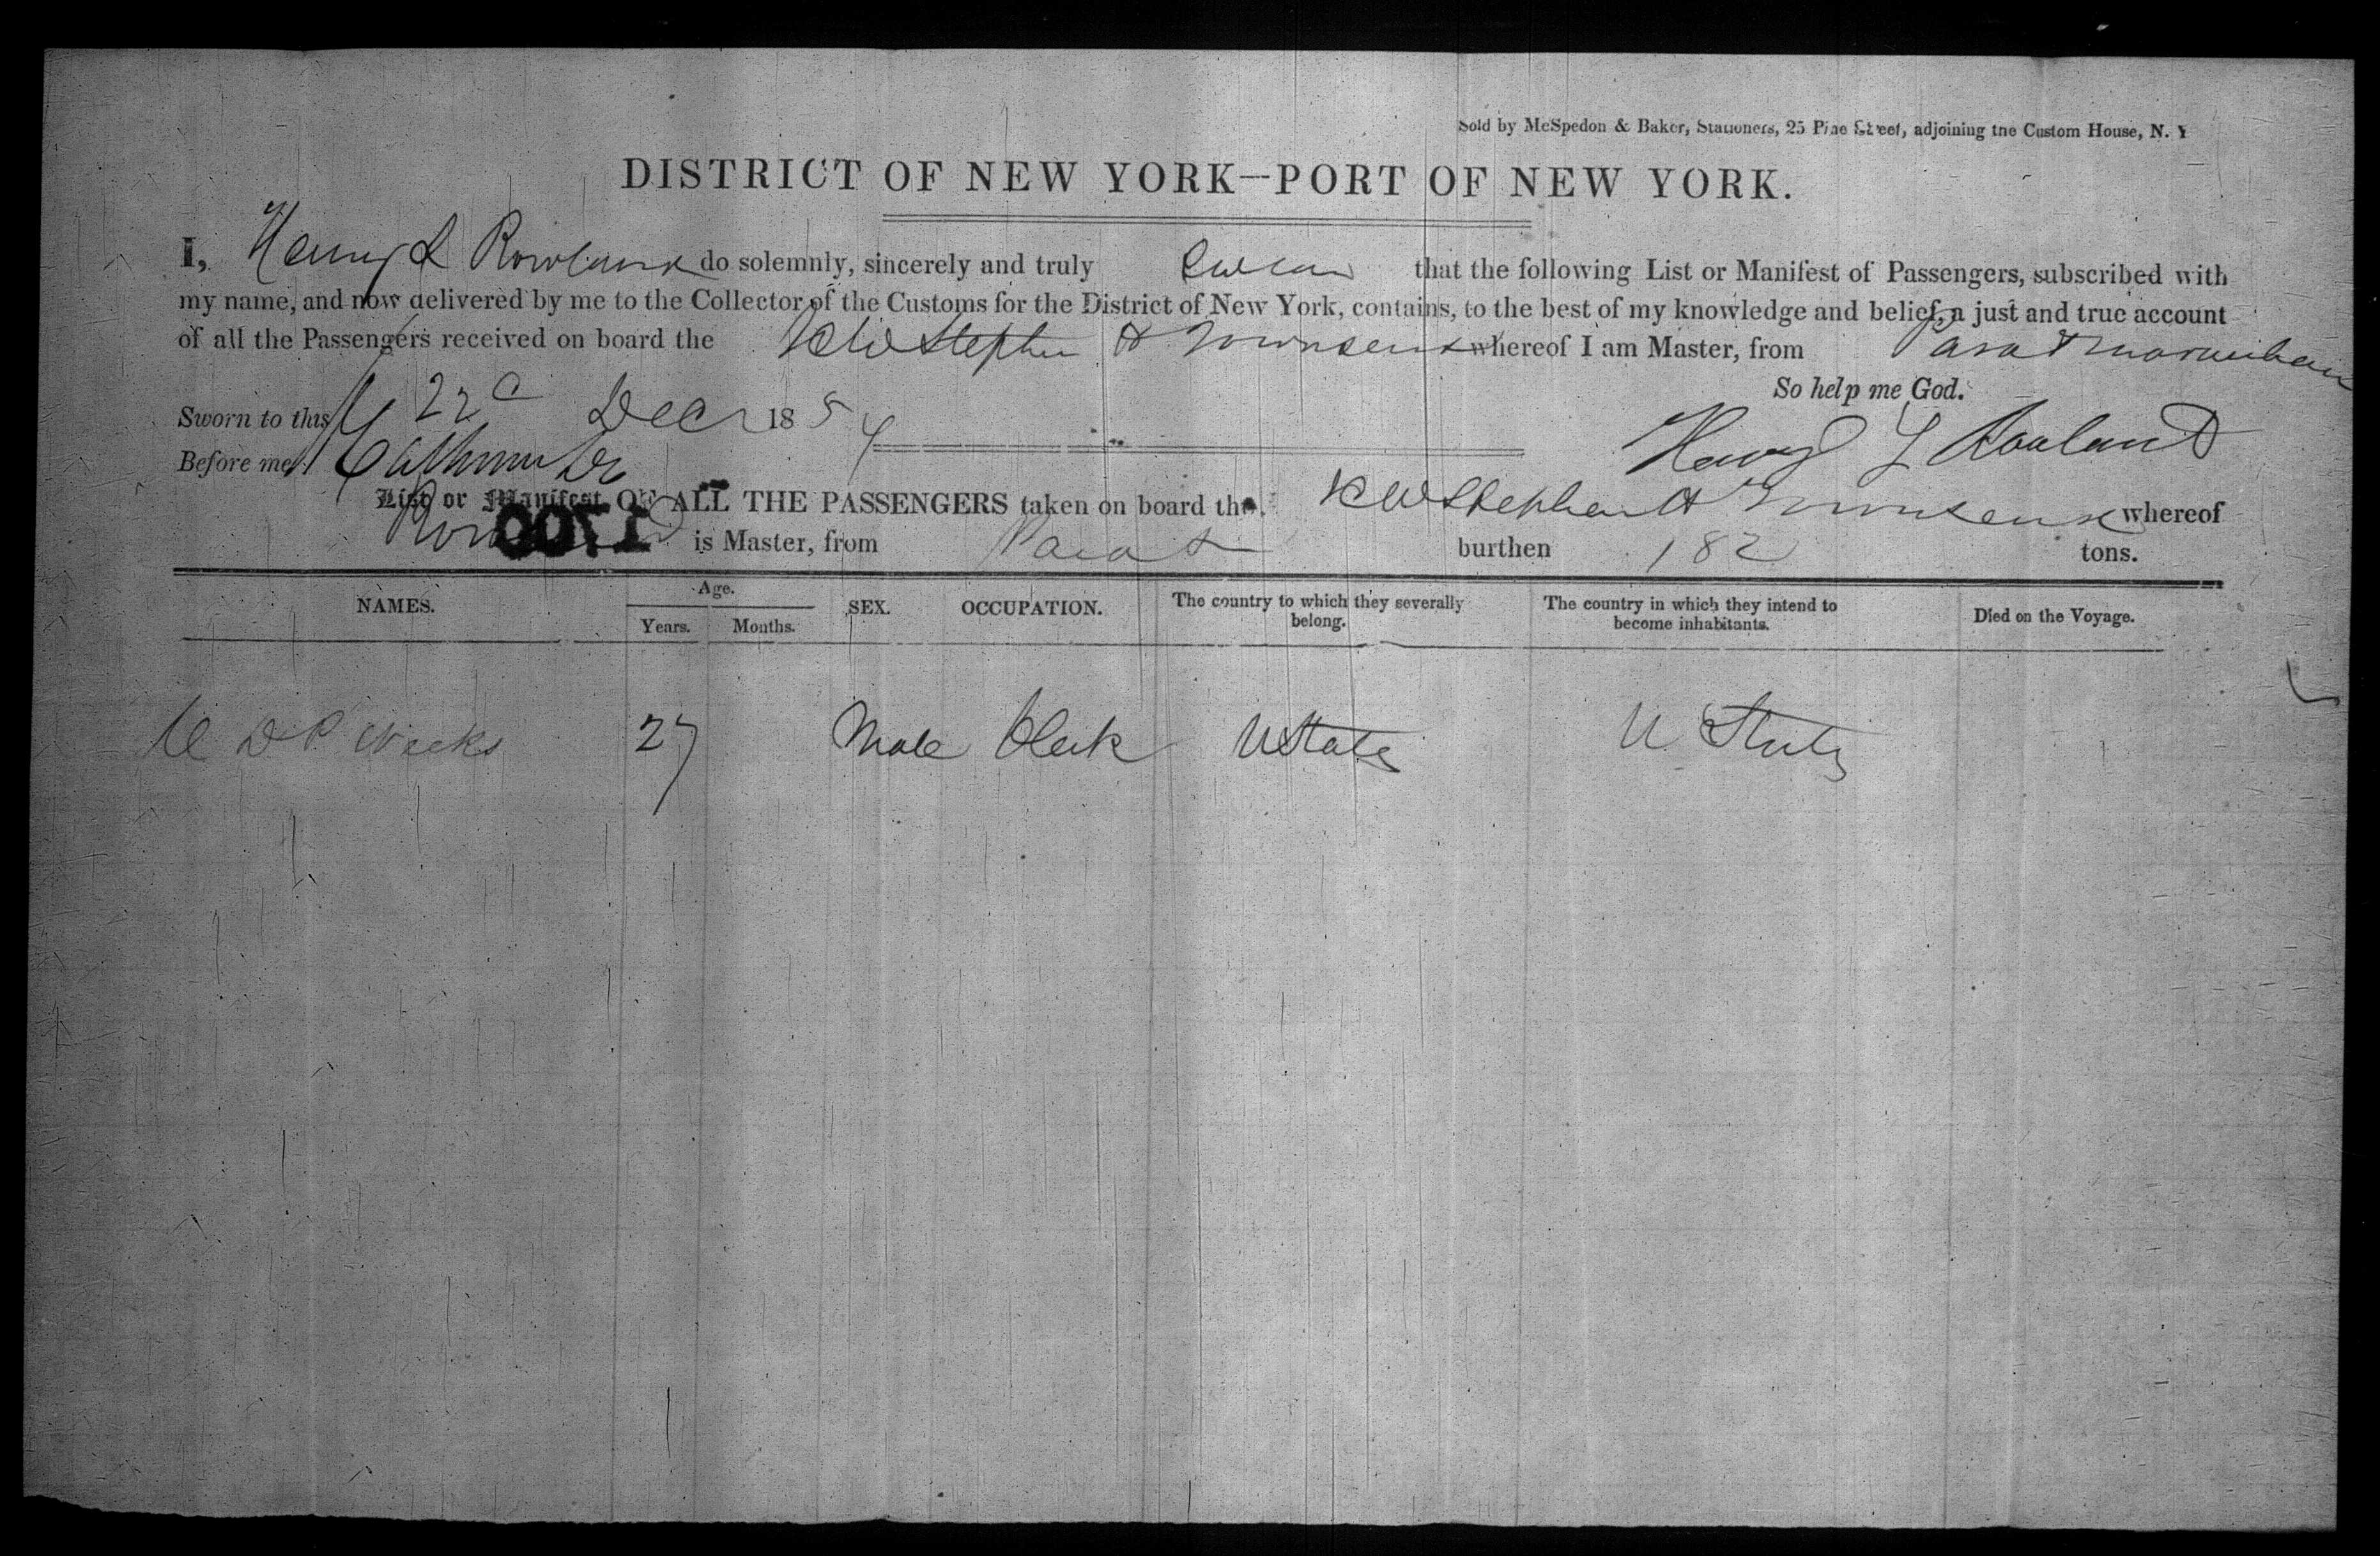 Sold by McSpedon & Baker, Stationers, 25 Pine Street, adjoining the Custom House, N. Y
DISTRICT OF NEW YORK—PORT OF NEW YORK.
I, Henry L Rowland do solemnly, sincerely and truly swear that the following List or Manifest of Passengers, subscribed with
my name, and now delivered by me to the Collector of the Customs for the District of New York, contains, to the best of my knowledge and belief, a just and true account
of all the Passengers received on board the Stephen H Townsend whereof I am Master, from Para & Maranham
So help me God.
Sworn to this 22d Decr 1854
Henry L Rowland
Before me,
List or Manifest OF ALL THE PASSENGERS taken on board the Stephen H Townsend whereof
Rowland is Master, from Para & burthen 182 tons.
1700
NAMES. Age. Years. Months. SEX. OCCUPATION. The country to which they severally belong. The country in which they intend to become inhabitants. Died on the Voyage.
D P Weeks 27 Male Clerk U States U. States